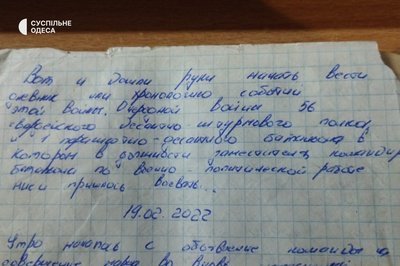 СУСПІЛЬНЕ
ОДЕСА
Вот и дошли руки начать вести
дневник или хронологию событий
этой войны. Очередной войны 56
гвардейского десантно-штурмового полка,
и 1 парашютно-десантного батальона в
котором в должности заместителя командир
батальона по военно политической работе
мне и пришлось воевать...
19.02.2022
Утро началось с объявление команды на
совершение марша во